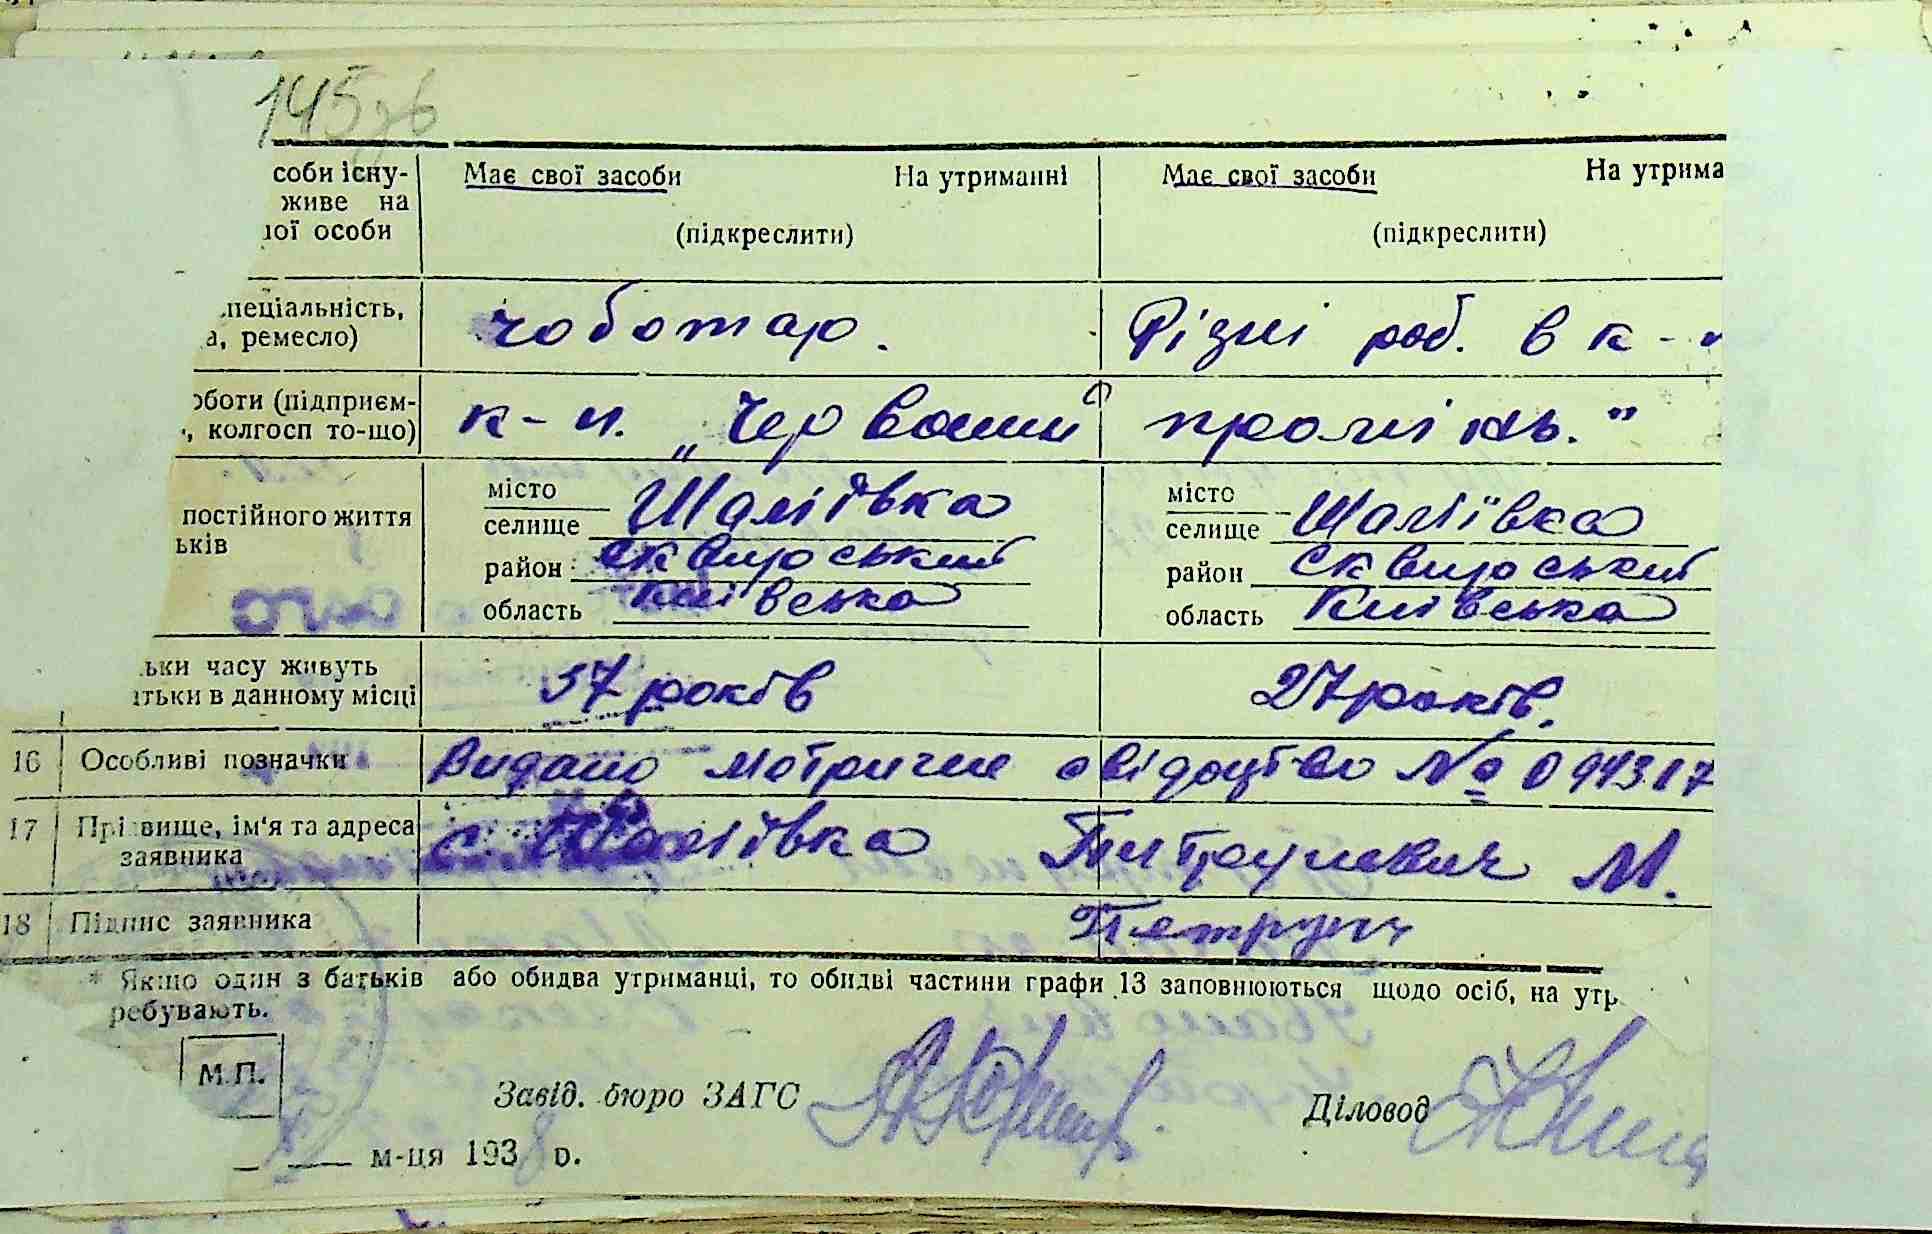 145 зв
соби існу- Має свої засоби На утриманні Має свої засоби На утрима
живе на
ної особи (підкреслити) (підкреслити)
пеціальність, чоботар. Різні роб. в к-
а, ремесло)
оботи (підприєм- к-п. „Червоний промінь."
, колгосп то-що)
місто місто
постійного життя селище Шаліївка селище Шаліївка
ьків район Сквирський район Сквирський
область Київська область Київська
ьки часу живуть 37 років 27 років.
тьки в данному місці
16 Особливі позначки Видано метричне свідоцтво № 094317
17 Прізвище, ім'я та адреса с. Шаліївка М.
заявника
18 Підпис заявника
* Якщо один з батьків або обидва утриманці, то обидві частини графи 13 заповнюються щодо осіб, на утр
ребувають.
М.П.
Завід. бюро ЗАГС Діловод
м-ця 1938 р.